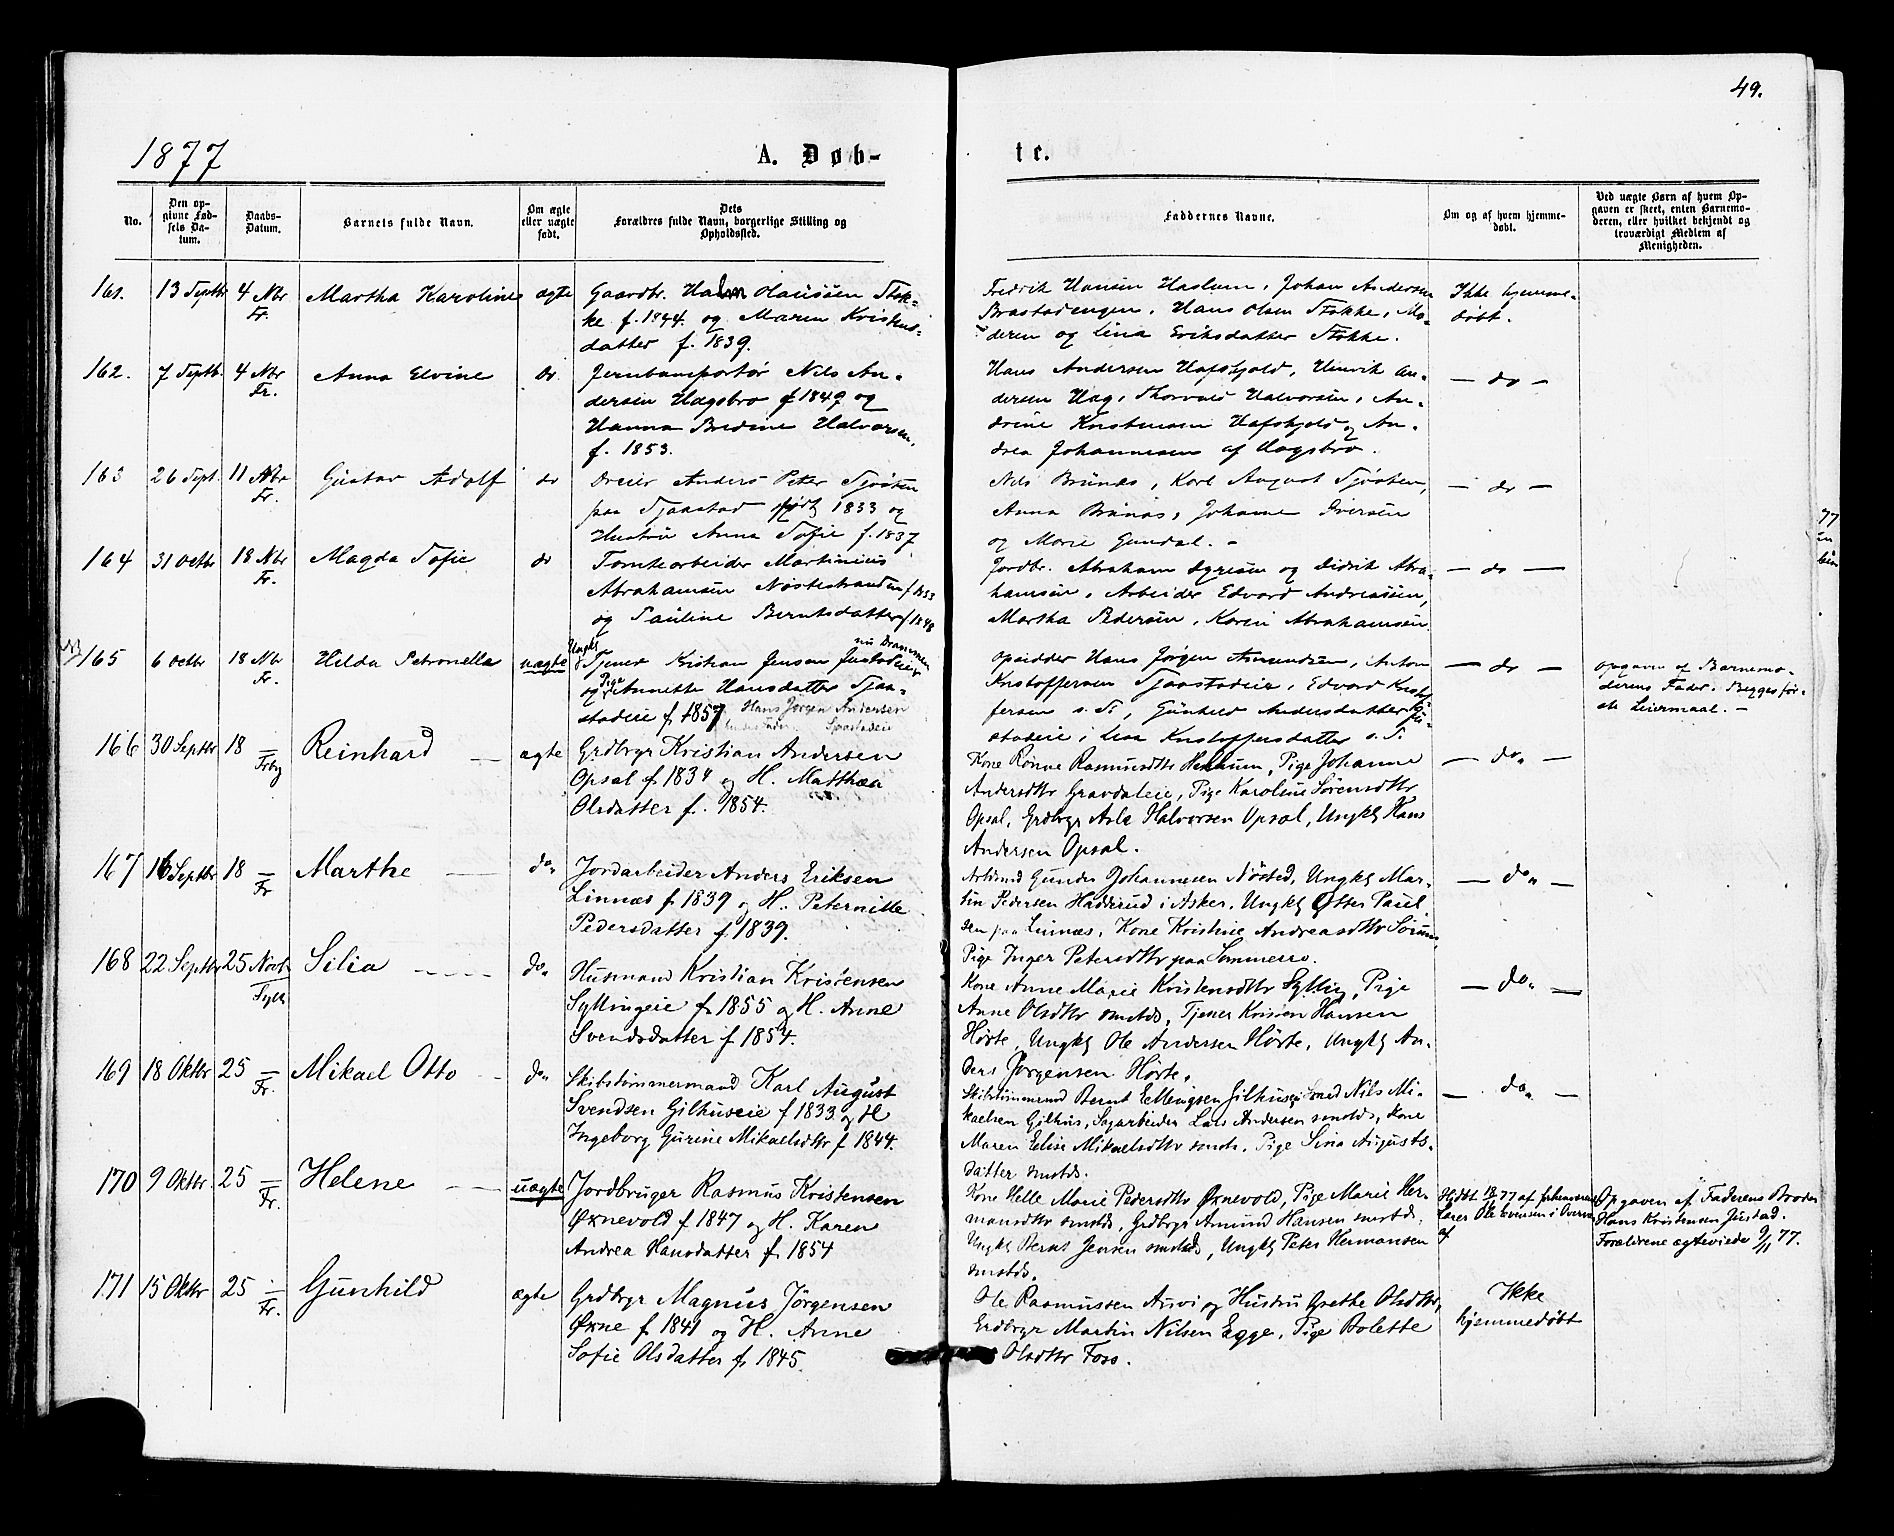 49.
1877
A. Døb-
te.
No.
Den op-
givne Fød-
sels Da-
tum.
Daabs-
Datum.
Barnets fulde Navn.
Om ægte
eller uægte
født.
Dets
Forældres fulde Navn, borgerlige Stilling og
Opholdssted.
Faddernes Navne.
Om og af hvem hjemme-
døbt.
Ved uægte Børn af hvem Op-
gaven er skeet, enten Barnemo-
deren, eller hvilket bekjendt og
troværdigt Medlem af
Menigheden.
161. 13 Septbr 4 Nbr Martha Karoline ægte Gaardbr. Olaussen Stok-
Fr. ke f. 1844. og Maren Kristens-
datter f. 1839.
Fredrik Hansen Haslum, Johan Andersen
Brastadengen, Hans Olsen Stokke, Mo-
deren og Lina Eriksdatter Stokke.
Ikke hjemme-
døbt.
162. 7 Septb. 4 Nbr Anna Elvine do Jernbanportør Nils An-
Fr. dersen Hagsbro f 1849 og
Hanna Bredine Halvorsen,
f. 1853.
Hans Andersen Hafskjold, Hinrik An-
dersen Hag, Thorvald Halvorsen, An-
drine Kristensen Hafskjold og An-
drea Johannesen af Hagsbro.
— do —
163 26 Sept. 11 Nbr Gustav Adolf do Dreier Anders Peter Sjøsten
Fr. paa Tjaastad født 1833 og
Hustru Anna Sofie f. 1837
Nils Brünæs, Karl August Sjøsten,
Anna Brünæs, Johanne Iversen
og Marie Gundal. -
— do —
164 31 Octbr 18 Nbr Magda Sofie do Tomtearbeider Martinius
Fr. Abrahamsen Nøstestranden f 1853
og Pauline Berntsdatter f 1848
Jordbr. Abraham Syvesen og Didrik Abra-
hamsen, Arbeider Edvard Andreassen,
Martha Pedersen, Karen Abrahamsen
— do —
165 6 Octbr 18 Nbr Hilda Petronella uægte Ungk. nu Drammen
Fr. Tjener Kristian Jensen Justadeie
og Pige Annette Hansdatter Tjaa-
stadeie f. 1857 Hans Jørgen Andersen
Opsidder Hans Jørgen Amundsen, Anton
Kristoffersen Tjaastadeie, Edvard Kristof-
fersen s. St, Gunhild Andersdatter Ju-
stadeie, Lina Kristoffersdatter s. St.
— do —
Opgaven af Barnemo-
derens Fader. Begges før-
ste Leiermaal. —
166 30 Septbr 18 — Reinhard — ægte Grdbrgr Kristian Andersen
Frby Opsal f. 1834 og H. Matthea
Olsdatter f. 1854.
Kone Rønne Rasmusdttr Hennum, Pige Johanne
Andersdttr Gravdaleie, Pige Karoline Sørensdttr
Opsal, Grdbrgr Asle Halvorsen Opsal, Ungkl Hans
Andersen Opsal.
— do. —
167 16 Septbr 18 — Marthe — do. Jordarbeider Anders Eriksen
Fr Linnæs f. 1839 og H. Peternille
Pedersdatter f. 1839.
Arbmd Gunder Johannesen Nøsted, Ungkl Mar-
tin Pedersen Hadderud i Asker, Ungkl Otter Paul-
sen paa Linnæs, Kone Kristine Andreasdttr Sørum,
Pige Inger Petersdttr paa Sommerro.
— do. —
168 22 Septbr 25 Novb Silia — do. Husmand Kristian Kristensen
Syll Syllingeie f. 1855 og H. Anne
Svendsdatter f 1854.
Kone Anne Marie Kristensdttr Sylling, Pige
Anne Olsdttr smstds, Tjener Kristen Hansen
Hørte, Ungkl Ole Andersen Hørte, Ungkl An-
ders Jørgensen Hørte.
— do. —
169 18 Oktbr 25 — Mikael Otto - do. Skibstømmermand Karl August
Fr. Svendsen Gilhuseie f 1833 og H
Ingeborg Gurine Mikaelsdttr f 1844.
Skibstømmermd Bernt Ellingsen Gilhus, Smed Nils Mi-
kaelsen Gilhus, Sagarbeider Lars Andersen smstds, Kone
Maren Elise Mikaelsdttr smstds. Pige Sina Augusts-
datter smstds.
— do. —
170 9 Oktbr. 25 — Helene — uægte Jordbruger Rasmus Kristensen
Fr. Øxnevold f 1847 og H. Karen
Andrea Hansdatter f. 1854
Kone Helle Marie Pedersdttr Øxnevold, Pige Marie Her-
mansdttr smstds, Grdbrgr Amund Hansen smstds,
Ungkl Bernt Jensen smstds, Ungkl Peter Hermansen
smstds.
Hjdbt 77 af
Lærer Ole Evensen i
Opgaven af Faderens Broder
Hans Kristensen Justad.
Forældrene ægteviede 9/11 77.
171 15 Oktbr 25 — Gunhild ægte Grdbrgr Magnus Jørgensen
Fr. Øxne f. 1841 og H. Anne
Sofie Olsdatter f. 1845.
Ole Rasmussen Auvi og Hustru Grethe Olsdttr,
Grdbrgr Martin Nilsen Egge, Pige Bolette
Olsdttr Foss.
Ikke
hjemmedøbt